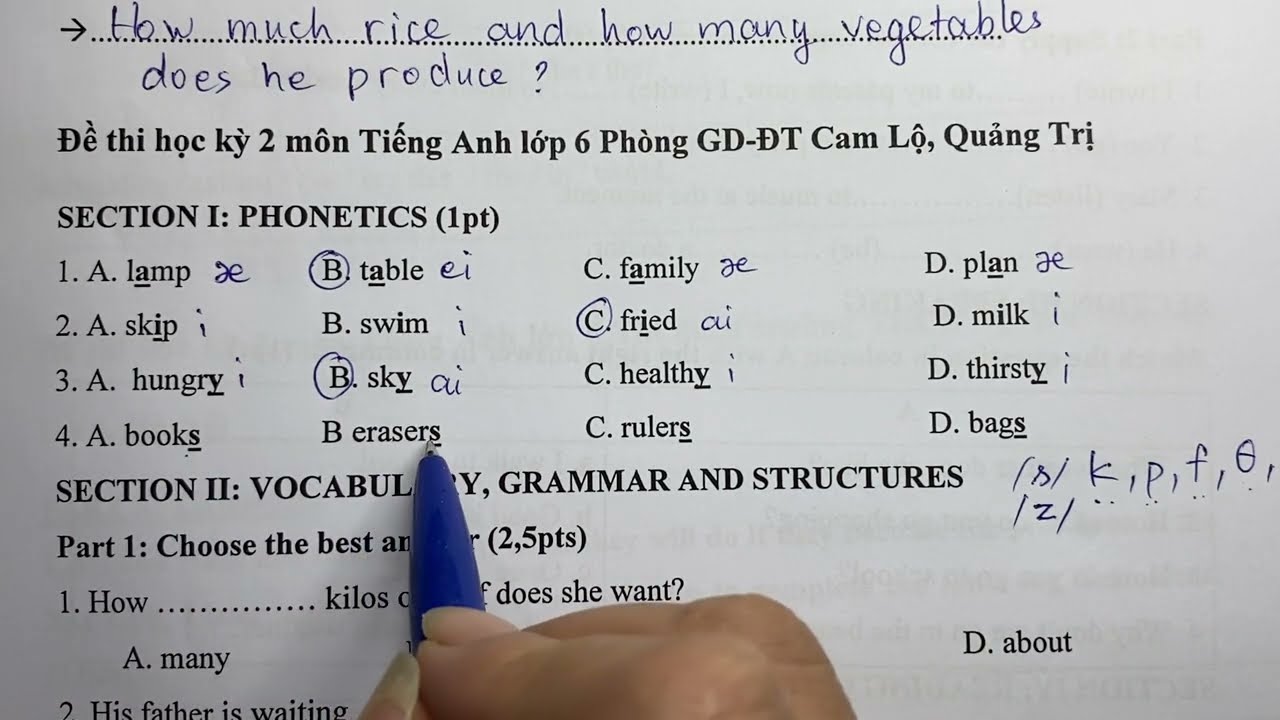 → How much rice and how many vegetables
does he produce?
Đề thi học kỳ 2 môn Tiếng Anh lớp 6 Phòng GD-ĐT Cam Lộ, Quảng Trị
SECTION I: PHONETICS (1pt)
1. A. lamp æ B. table ei C. family æ D. plan æ
2. A. skip i B. swim i C. fried ai D. milk i
3. A. hungry i B. sky ai C. healthy i D. thirsty i
4. A. books B erasers C. rulers D. bags
/s/ k, p, f, θ,
/z/
SECTION II: VOCABUL Y, GRAMMAR AND STRUCTURES
Part 1: Choose the best an r (2,5pts)
1. How …………… kilos o f does she want?
A. many D. about
2. His father is waiting